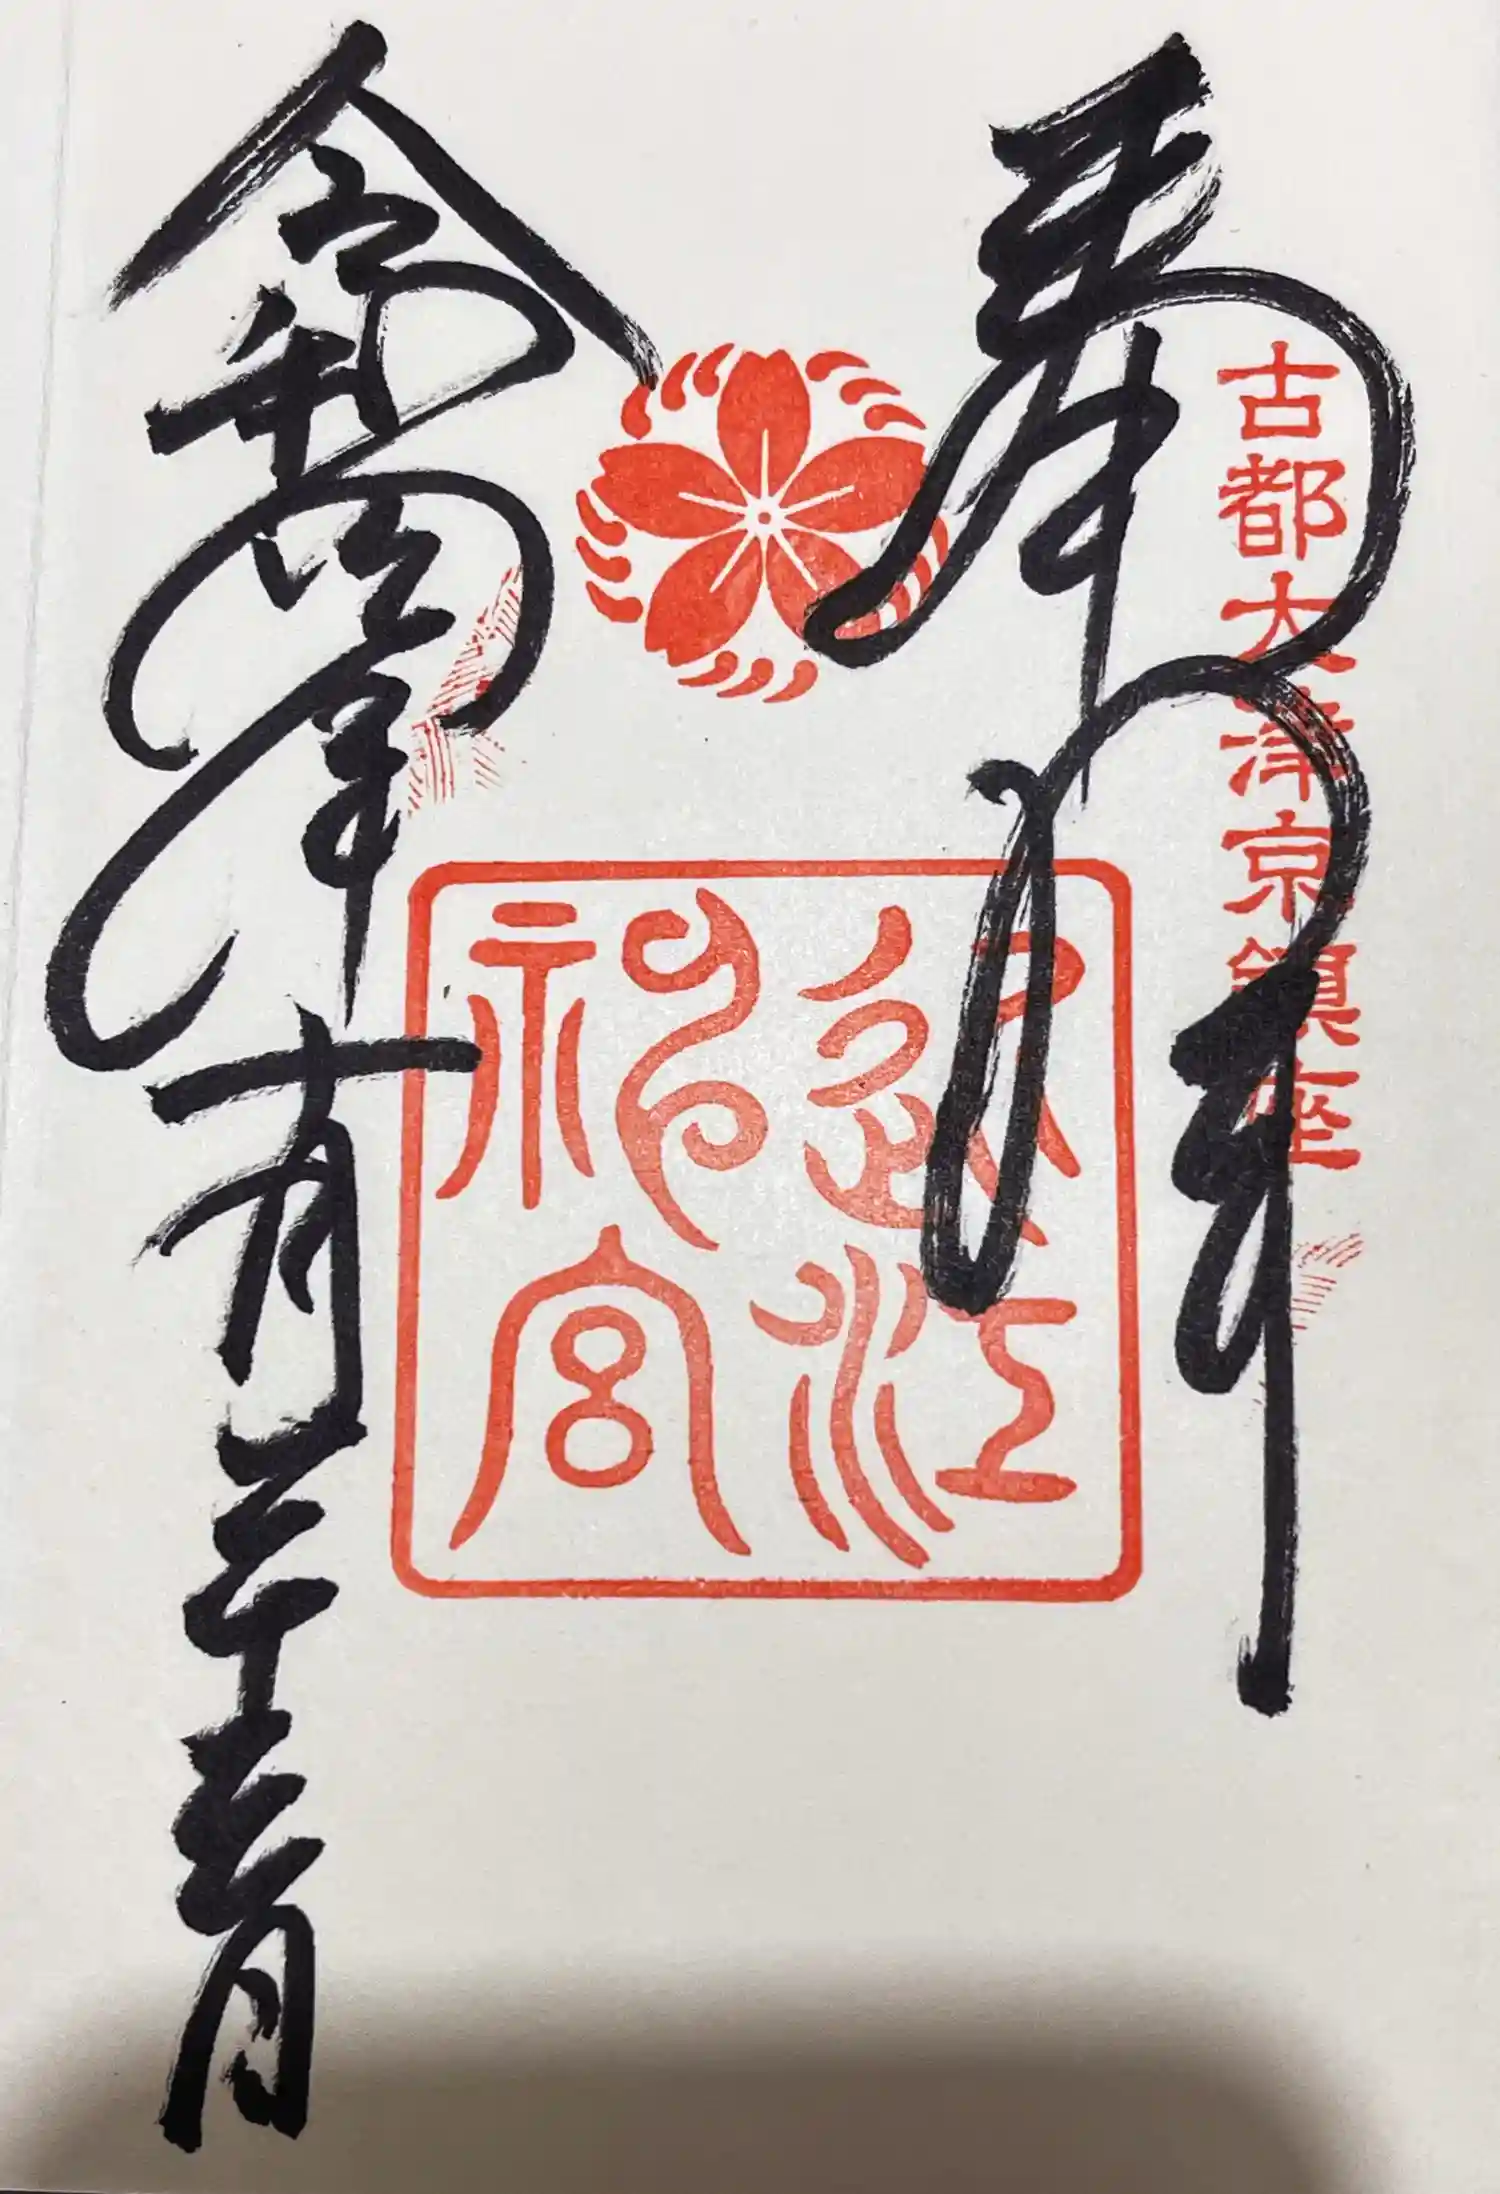 奉拝
古都大津京鎮座
近江
神宮
令和
年十月二十三日